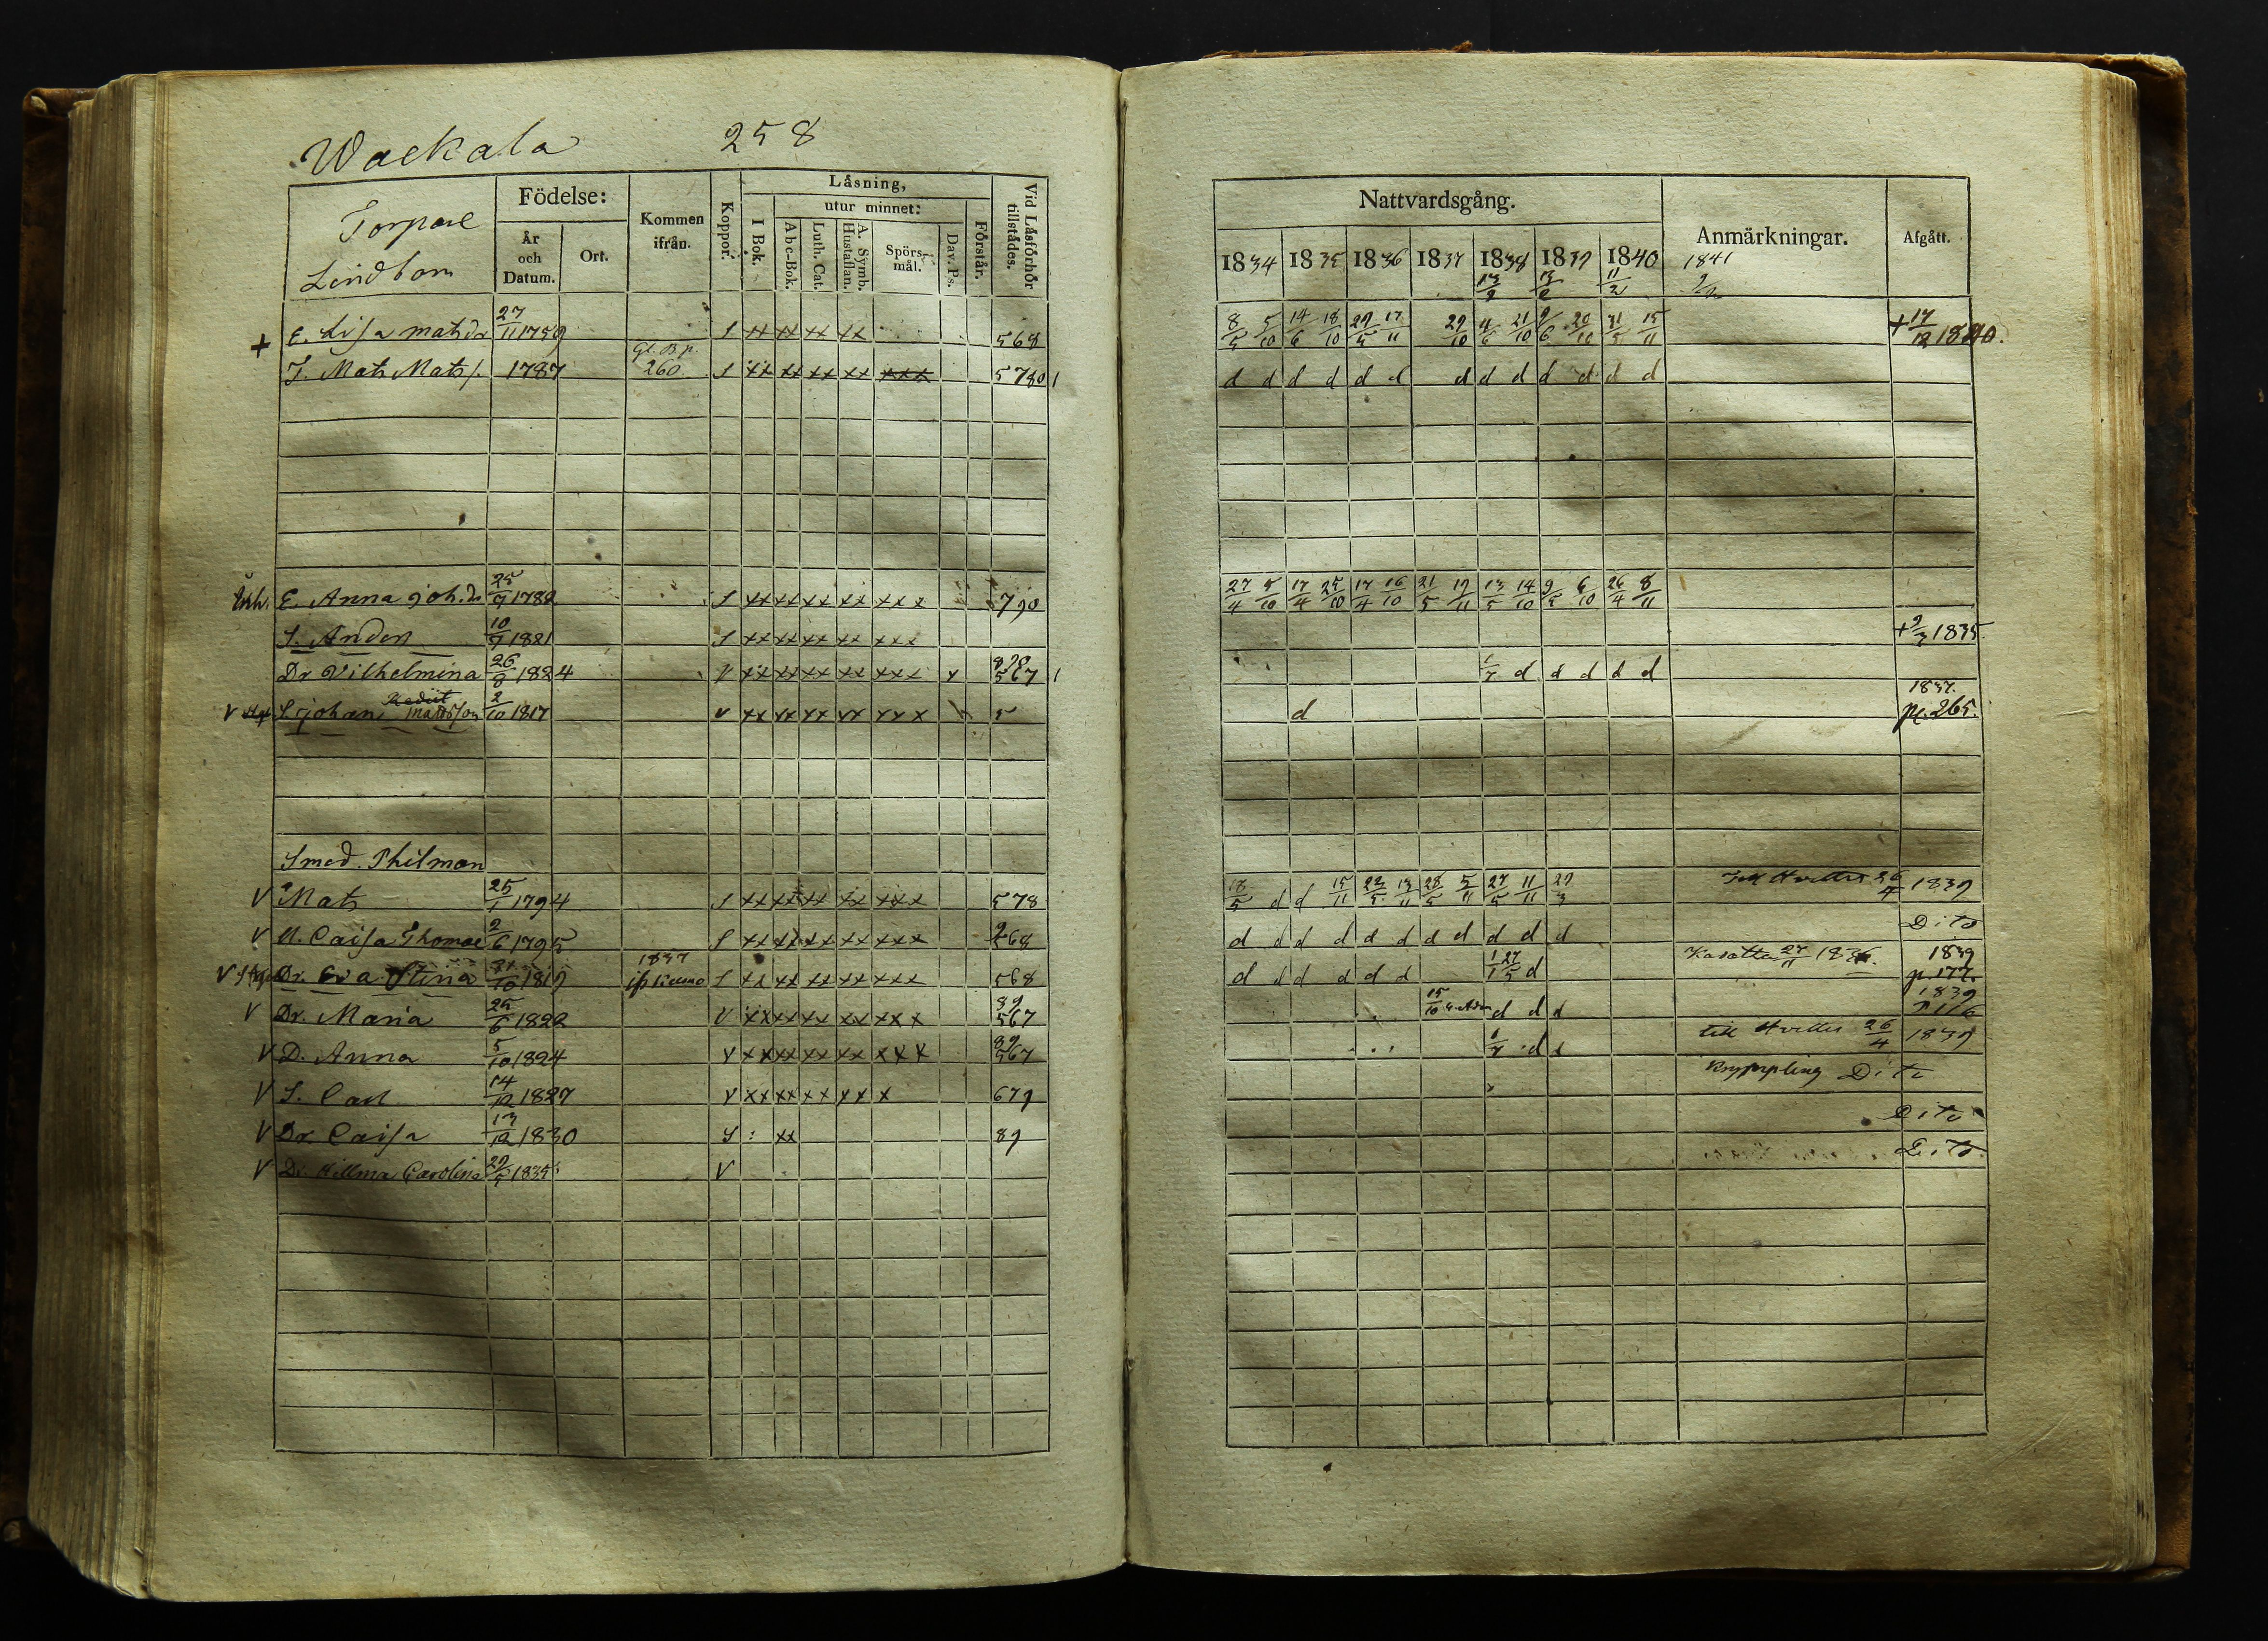 Wackala 258
Torpare
Lindbom
Födelse:
År och Datum.
Ort.
Kommen ifrån.
Koppor.
Läsning,
I Bok.
utur minnet:
Abc-Bok.
Luth. Cat.
A. Symb. Hustaflan.
Spörsmål.
Dav. Ps.
Förstår.
Vid Läsförhör tillstädes.
+ E. Lisa matsdr 27/11 1759 S xx xx xx xx 568
J. Mats Mats/. 1787 260 S xx xx xx xx xxx 5780 1
Enh. E. Anna joh.dr 25/9 1782 S xx xx xx xx xxx 790
S. Anders 10/7 1821 S xx xx xx xx xxx
Dr Vilhelmina 26/8 1824 V xx xx xx xx xxx 567 1
V S. johan Mattsson 2/10 1817 V xx xx xx xx xxx 5
Smed. Thilman
V Mats 25/1 1794 S xx xx xx xx xxx 578
V U. Caisa Thomae 2/6 1795 S xx xx xx xx xxx 268
1837
V Dr. Eva Stina 31/10 1819 S xx xx xx xx xxx 568
V Dr. Maria 25/6 1822 V xx xx xx xx xxx 89 567
V D. Anna 5/10 1824 V xx xx xx xx xxx 89 567
V S. Carl 14/12 1827 V xx xx xx xx x 679
V Dr. Caisa 13/12 1830 S xx 89
V Dr. Hillma Carolina 29/5 1835 V
Nattvardsgång.
Anmärkningar.
Afgått.
1834 1835 1836 1837 1838 1839 1840 1841
13/2 13/2 11/2
8/5 5/10 14/6 18/10 29/5 17/11 29/10 4/6 21/10 9/6 20/10 31/5 15/11 + 17/12 1840.
d d d d d d d d d d d d d
27/4 5/10 17/4 25/10 17/4 16/10 21/5 19/11 13/5 14/10 9/5 6/10 26/4 8/11
+ 9/3 1835.
1/7 d d d d d
1837.
d pl. 265.
18/5 d d 15/11 22/5 13/11 28/5 5/11 27/5 11/11 29/3 26/4 1839
d d d d d d d d d d d Dito
d d d d d d 1/1 27/5 d 27/11 1836. 1839 p. 177.
15/10 d d d 1839
1/7 d d till Hvittis 26/4 1839
Dito
Dito
Dito